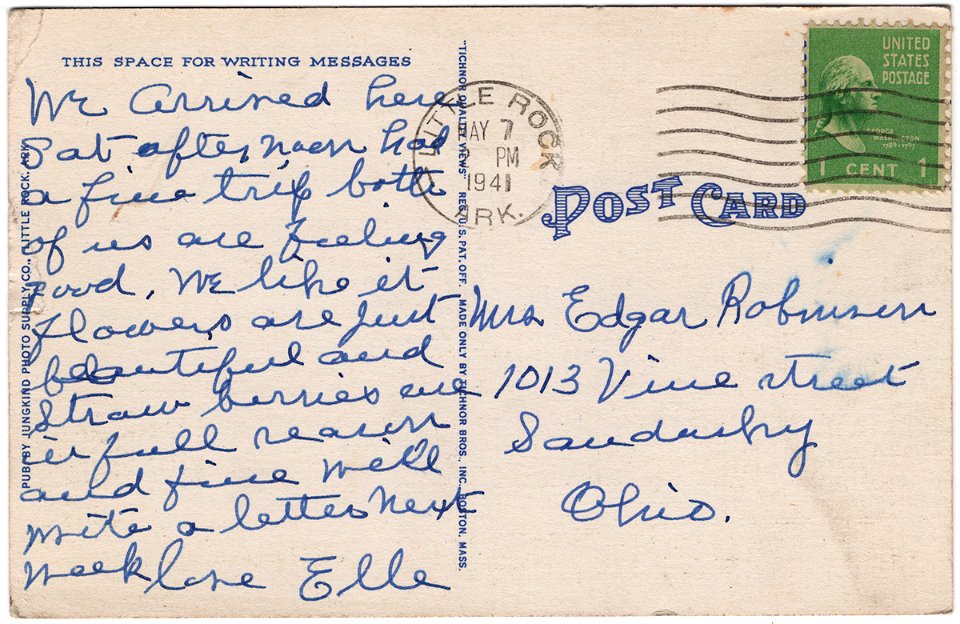 THIS SPACE FOR WRITING MESSAGES
We arrived here
Sat afternoon had
a fine trip both
of us are feeling
good, We like it
flowers are just
beautiful and
Straw berries are
in full season
and fine we'll
write a letter next
week love Elle
PUB. BY JUNGKIND PHOTO SUPPLY CO., LITTLE ROCK, ARK.
"TICHNOR QUALITY VIEWS" REG. U.S. PAT. OFF. MADE ONLY BY TICHNOR BROS., INC. BOSTON, MASS.
LITTLE ROCK
MAY 7
PM
1941
ARK.
UNITED
STATES
POSTAGE
GEORGE
WASHINGTON
1789-1797
1 CENT 1
POST CARD
Mrs Edgar Robinson
1013 Vine street
Sandusky
Ohio.